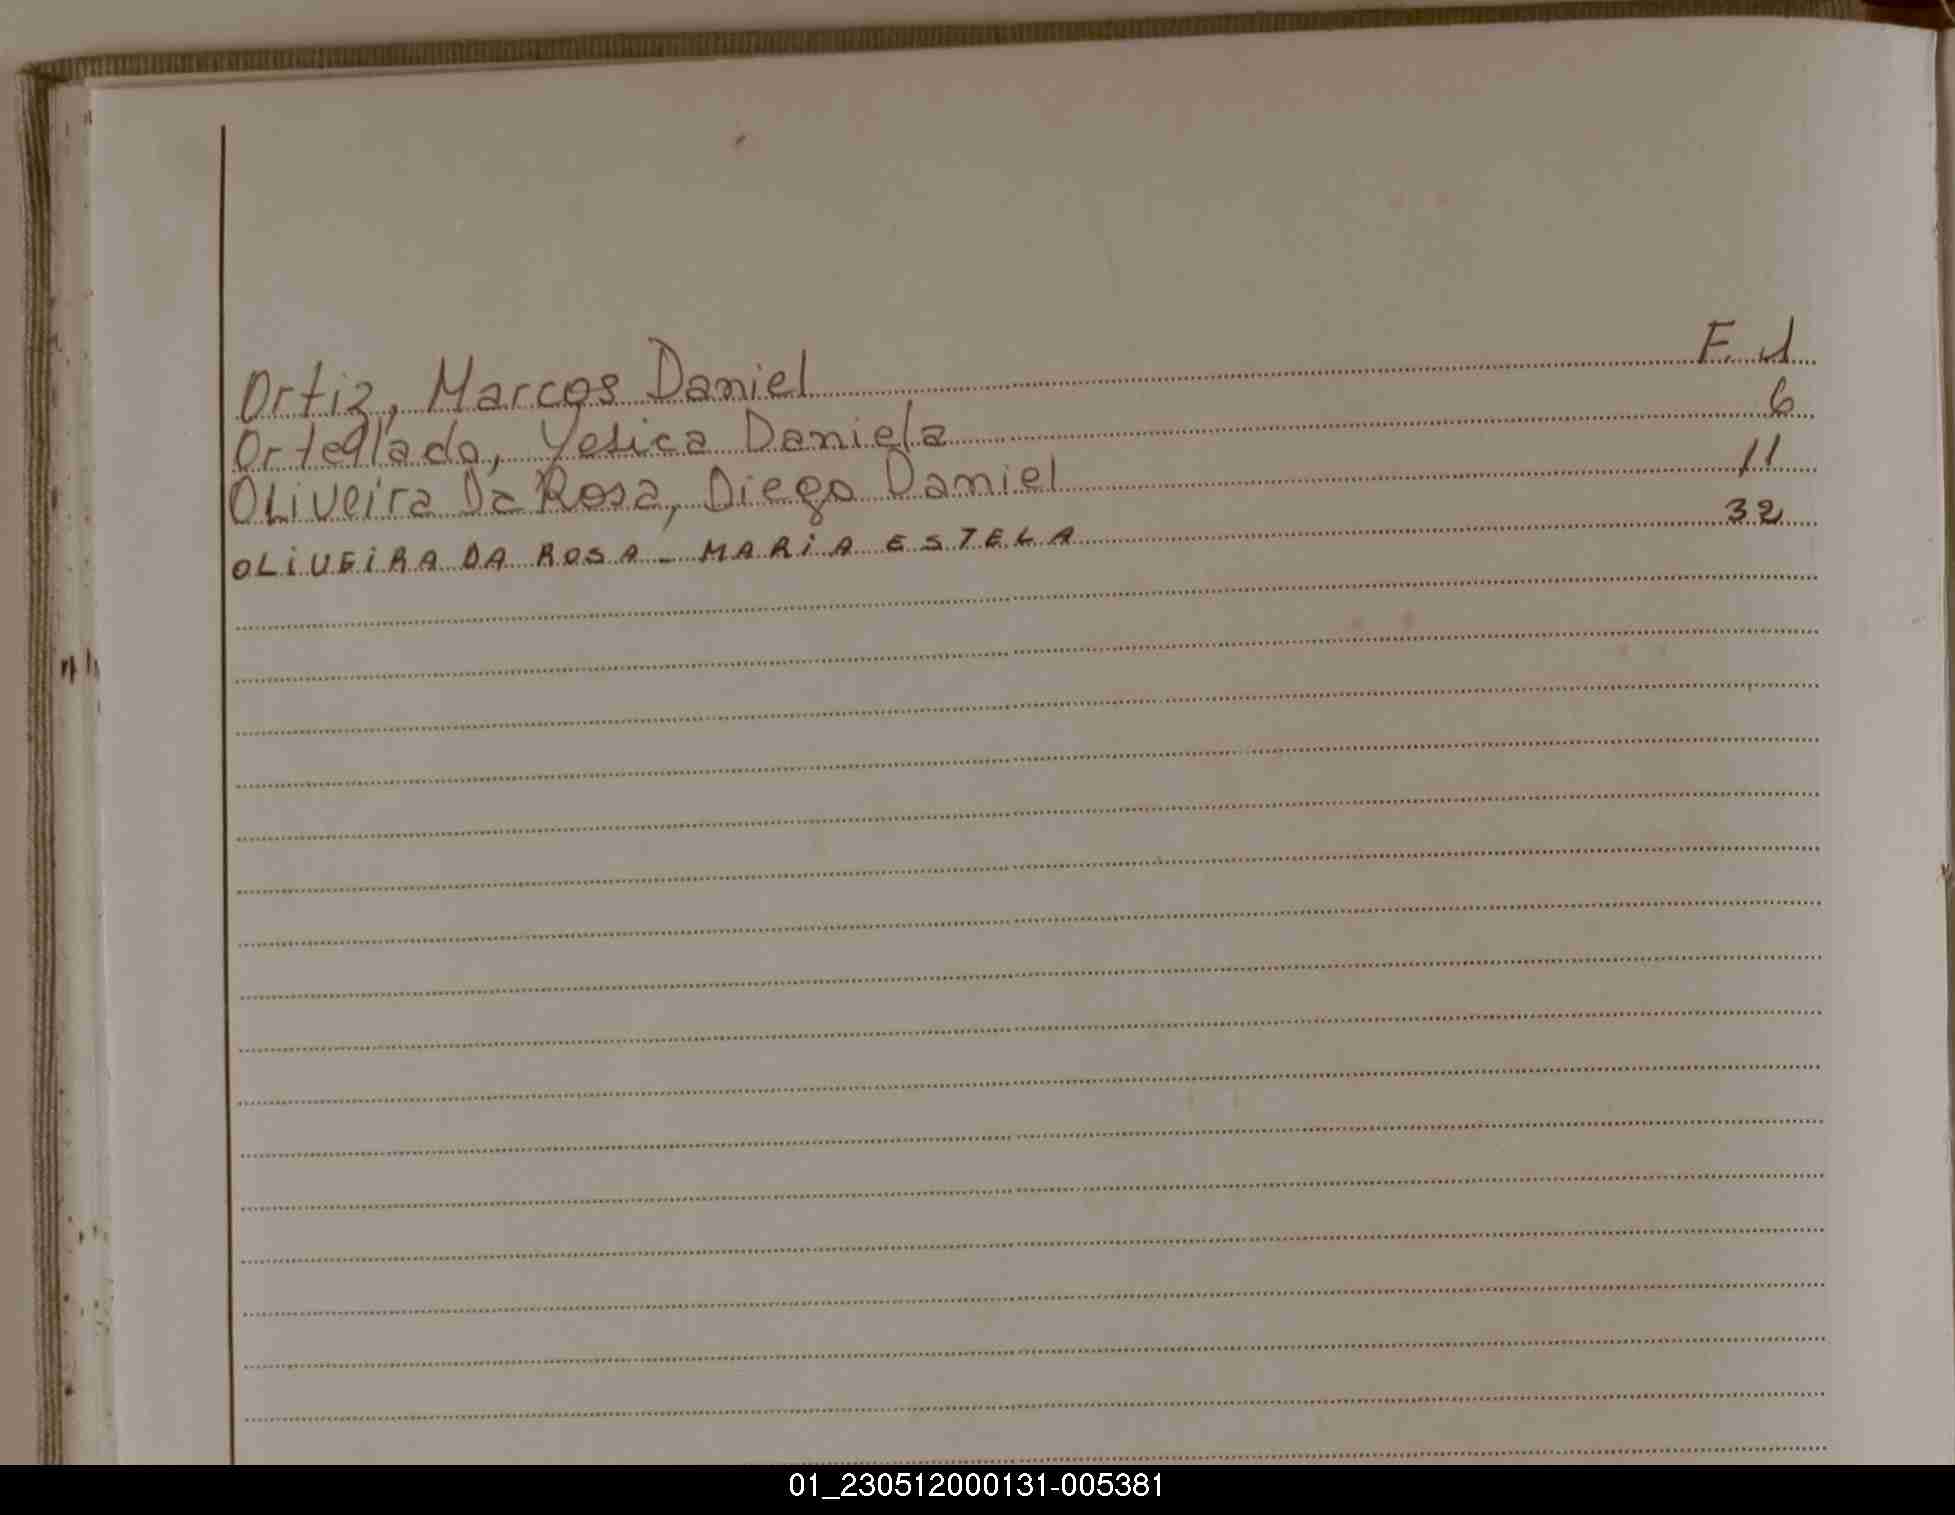 Ortiz, Marcos Daniel F. 1
Ortellado, Yesica Daniela 6
OLiveira Da Rosa, Diego Daniel 11
OLiVEiRA DA ROSA - MARiA ESTELA 32
01_230512000131-005381